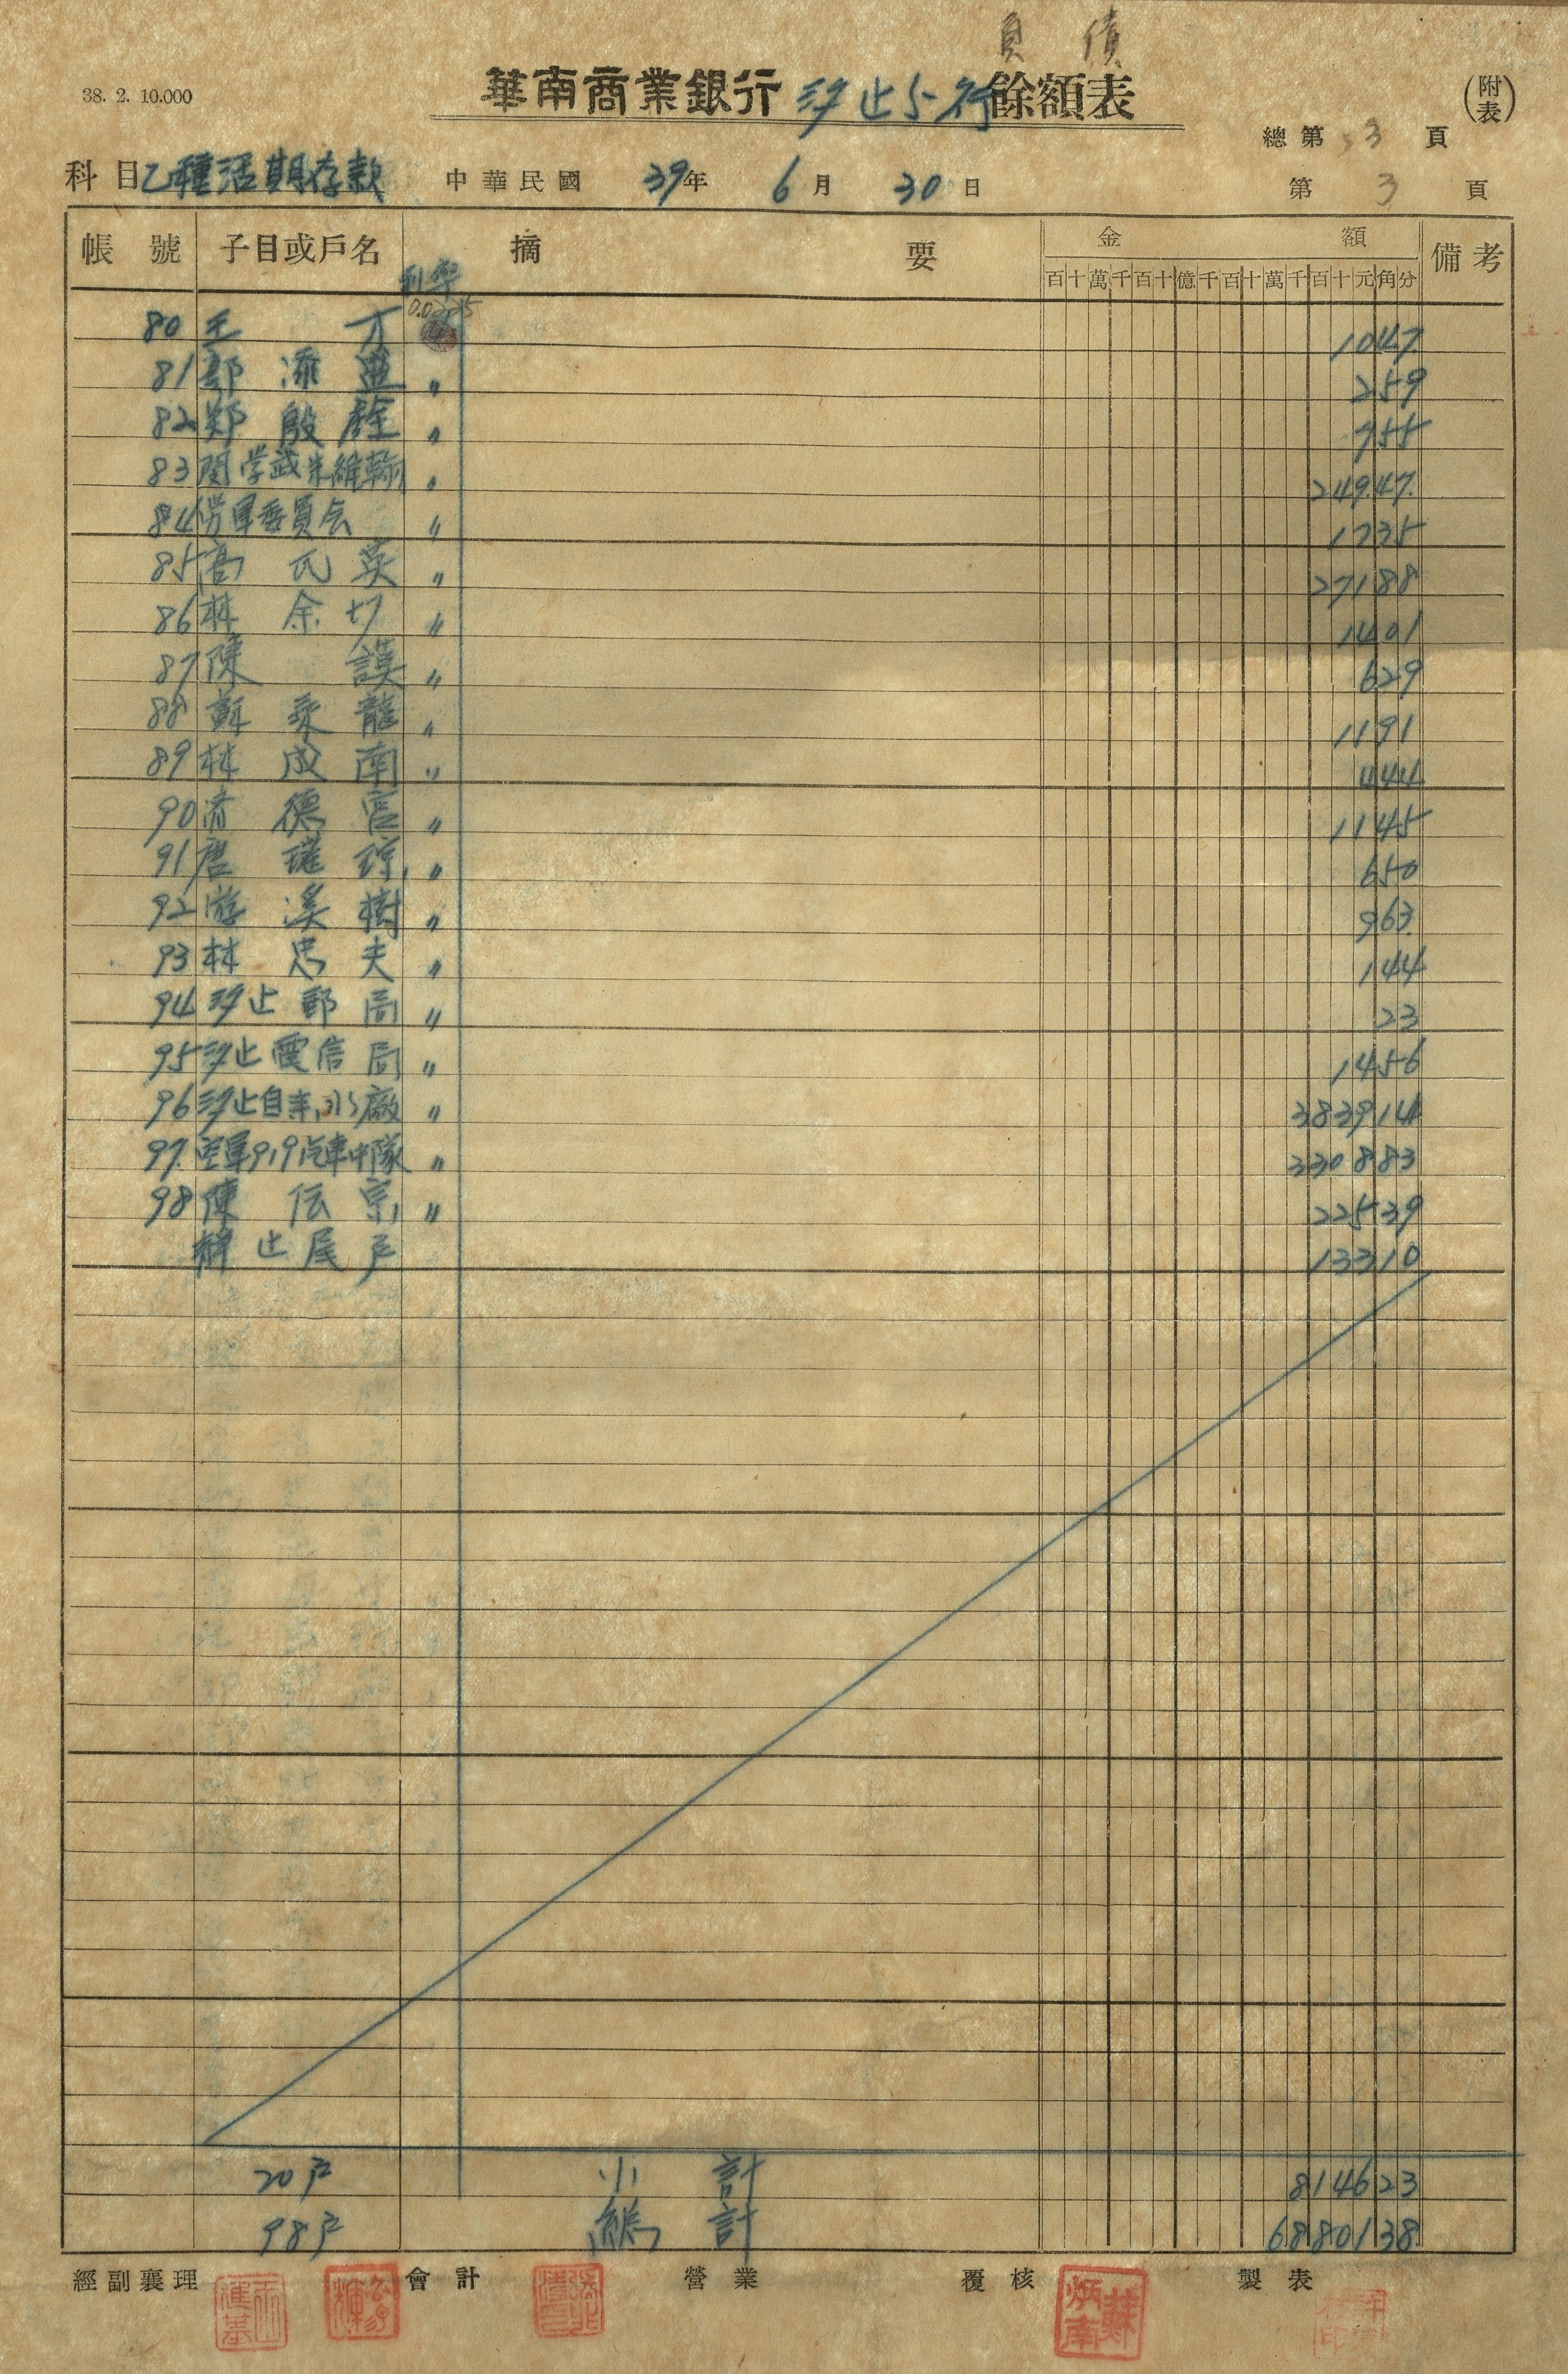 負債
38. 2. 10.000
華南商業銀行 汐止分行 餘額表
(附表)
總第 3 頁
科目 乙種活期存款 中華民國 39年 6月 30日 第 3 頁
帳號 子目或戶名 摘要 金額 備考
利率 百十萬千百十億千百十萬千百十元角分
80 王 才 1047
81 添 〃 259
82 鄭 殷 〃 755
83 関学武朱維翰 〃 24947
84 労軍委員会 〃 1735
85 高氏英 〃 27188
86 林余切 〃 1401
87 陳 謨 〃 629
88 蘇 龍 〃 1191
89 林成南 〃 444
90 齊德宮 〃 1145
91 唐 〃 650
92 游溪樹 〃 963
93 林忠夫 〃 144
94 汐止郵局 〃 23
95 汐止電信局 〃 1456
96 汐止自来水廠 〃 383914
97 空軍919汽車中隊 〃 330883
98 陳伝宗 〃 22539
靜止尾戶 13310
20戶 小計 814623
98戶 總計 6880138
經副襄理 會計 營業 覆核 製表
蘇炳南